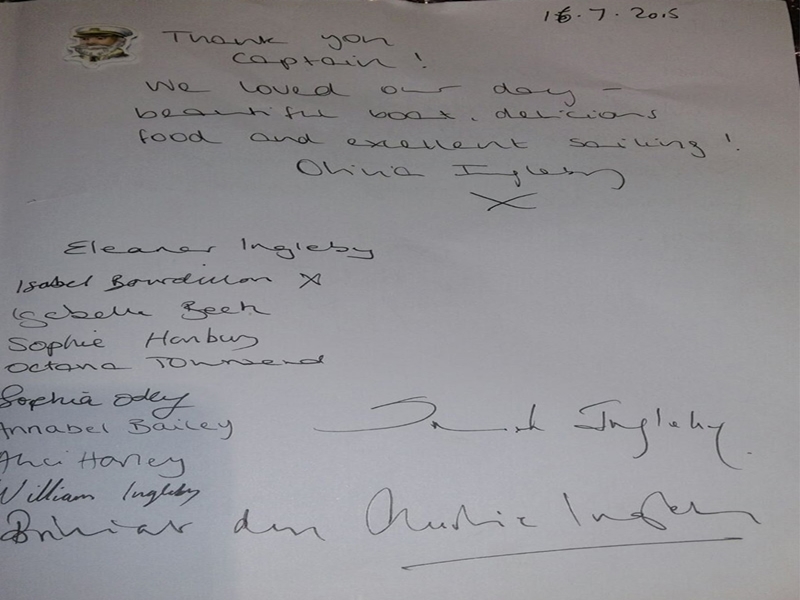 16.7.2015
Thank you
Captain!
We loved our day –
beautiful boat, delicious
food and excellent sailing!
Olivia Ingleby
X
Eleanor Ingleby
Isabel Bourdillon X
Isabelle Beek
Sophie Hanbury
Octana Townsend
Sophia Odey
Annabel Bailey
Harley
Ingleby.
William Ingleby
Ingleby